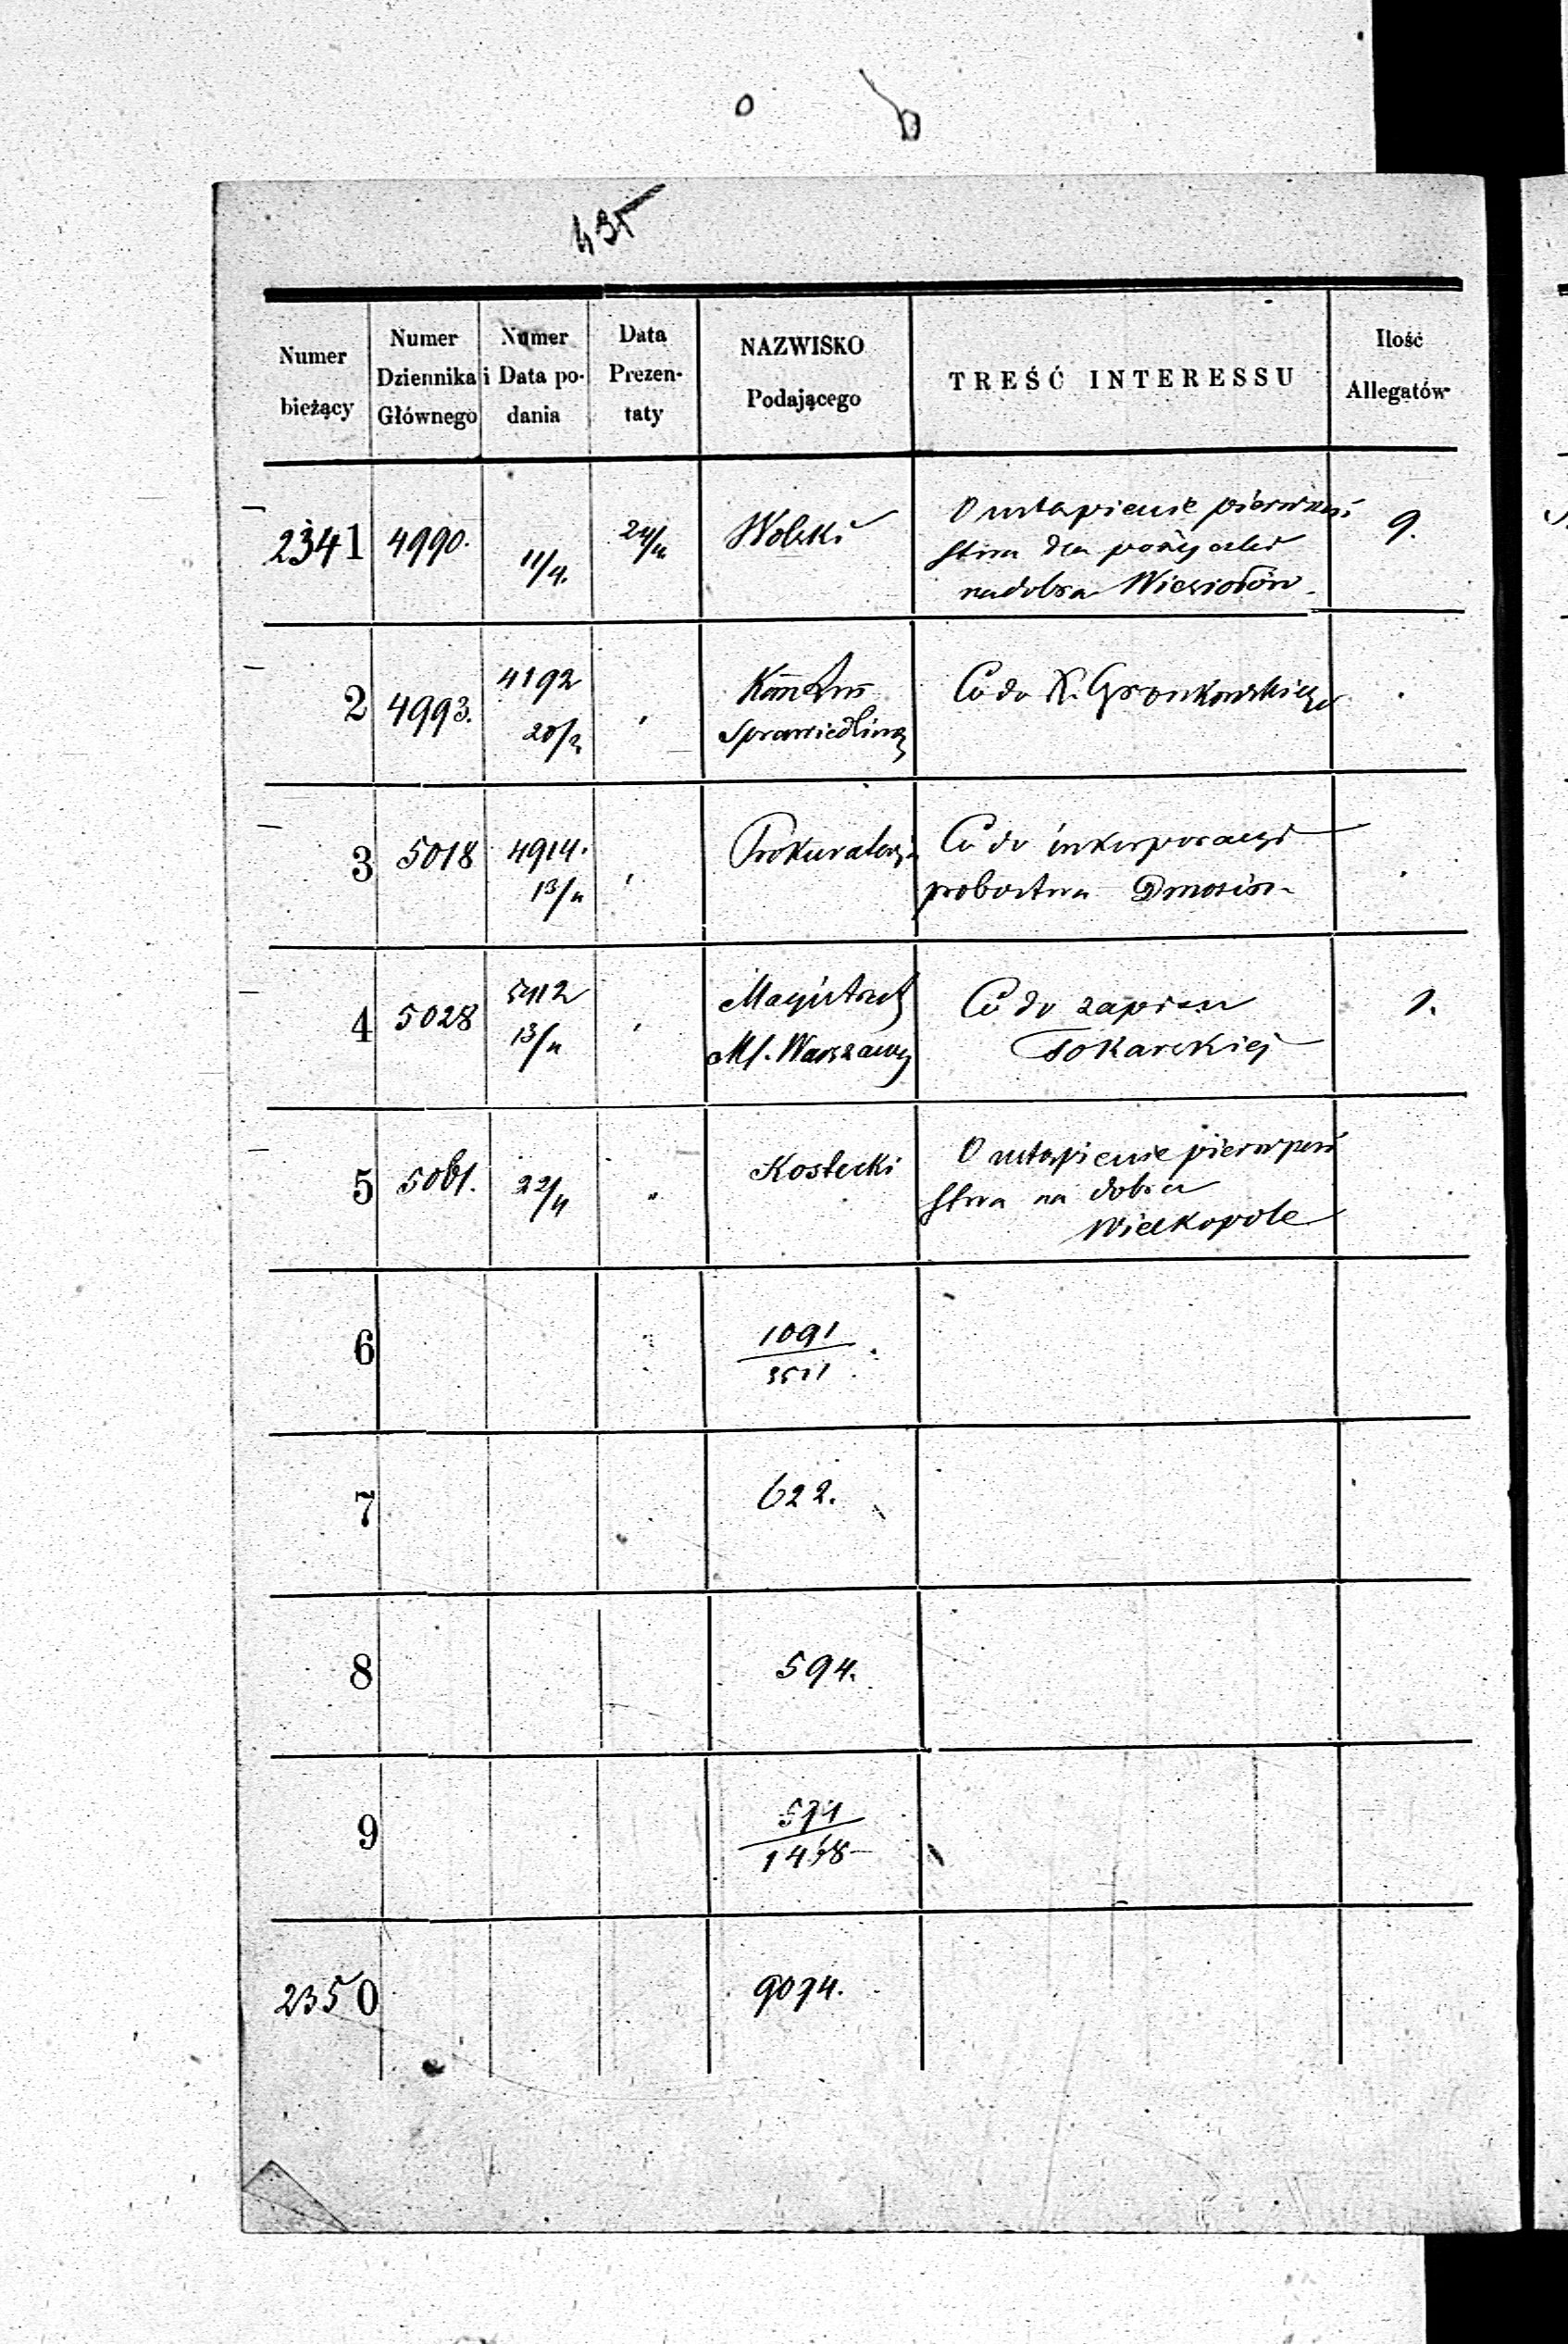 435
Numer bieżący
Numer Dziennika Głównego
Numer i Data podania
Data Prezentaty
NAZWISKO Podającego
TREŚĆ INTERESSU
Ilość Allegatów
2341 4990. 11/4. 24/4 Wolski O ustąpienie pierwszeń 9.
stwa dla pożyczki
na dobra Wiesiołów
2 4993. 4192 20/2 Sprawiedliwoś Co do X. Gronkowskiego
3 5018 4914. 13/4 Prokuratorja Co do inkorporacyi
probostwa Dmosin
4 5028 5412 13/4 Magistrat Co do zapisu 1.
M. Warszawy Tokarskiej
5 5061. 22/4 " Kostecki O ustąpienie pierwszeń
stwa na dobra
Wielkopole
6 1091
3511
7 622.
8 594.
9 574
1458
2350 9074.